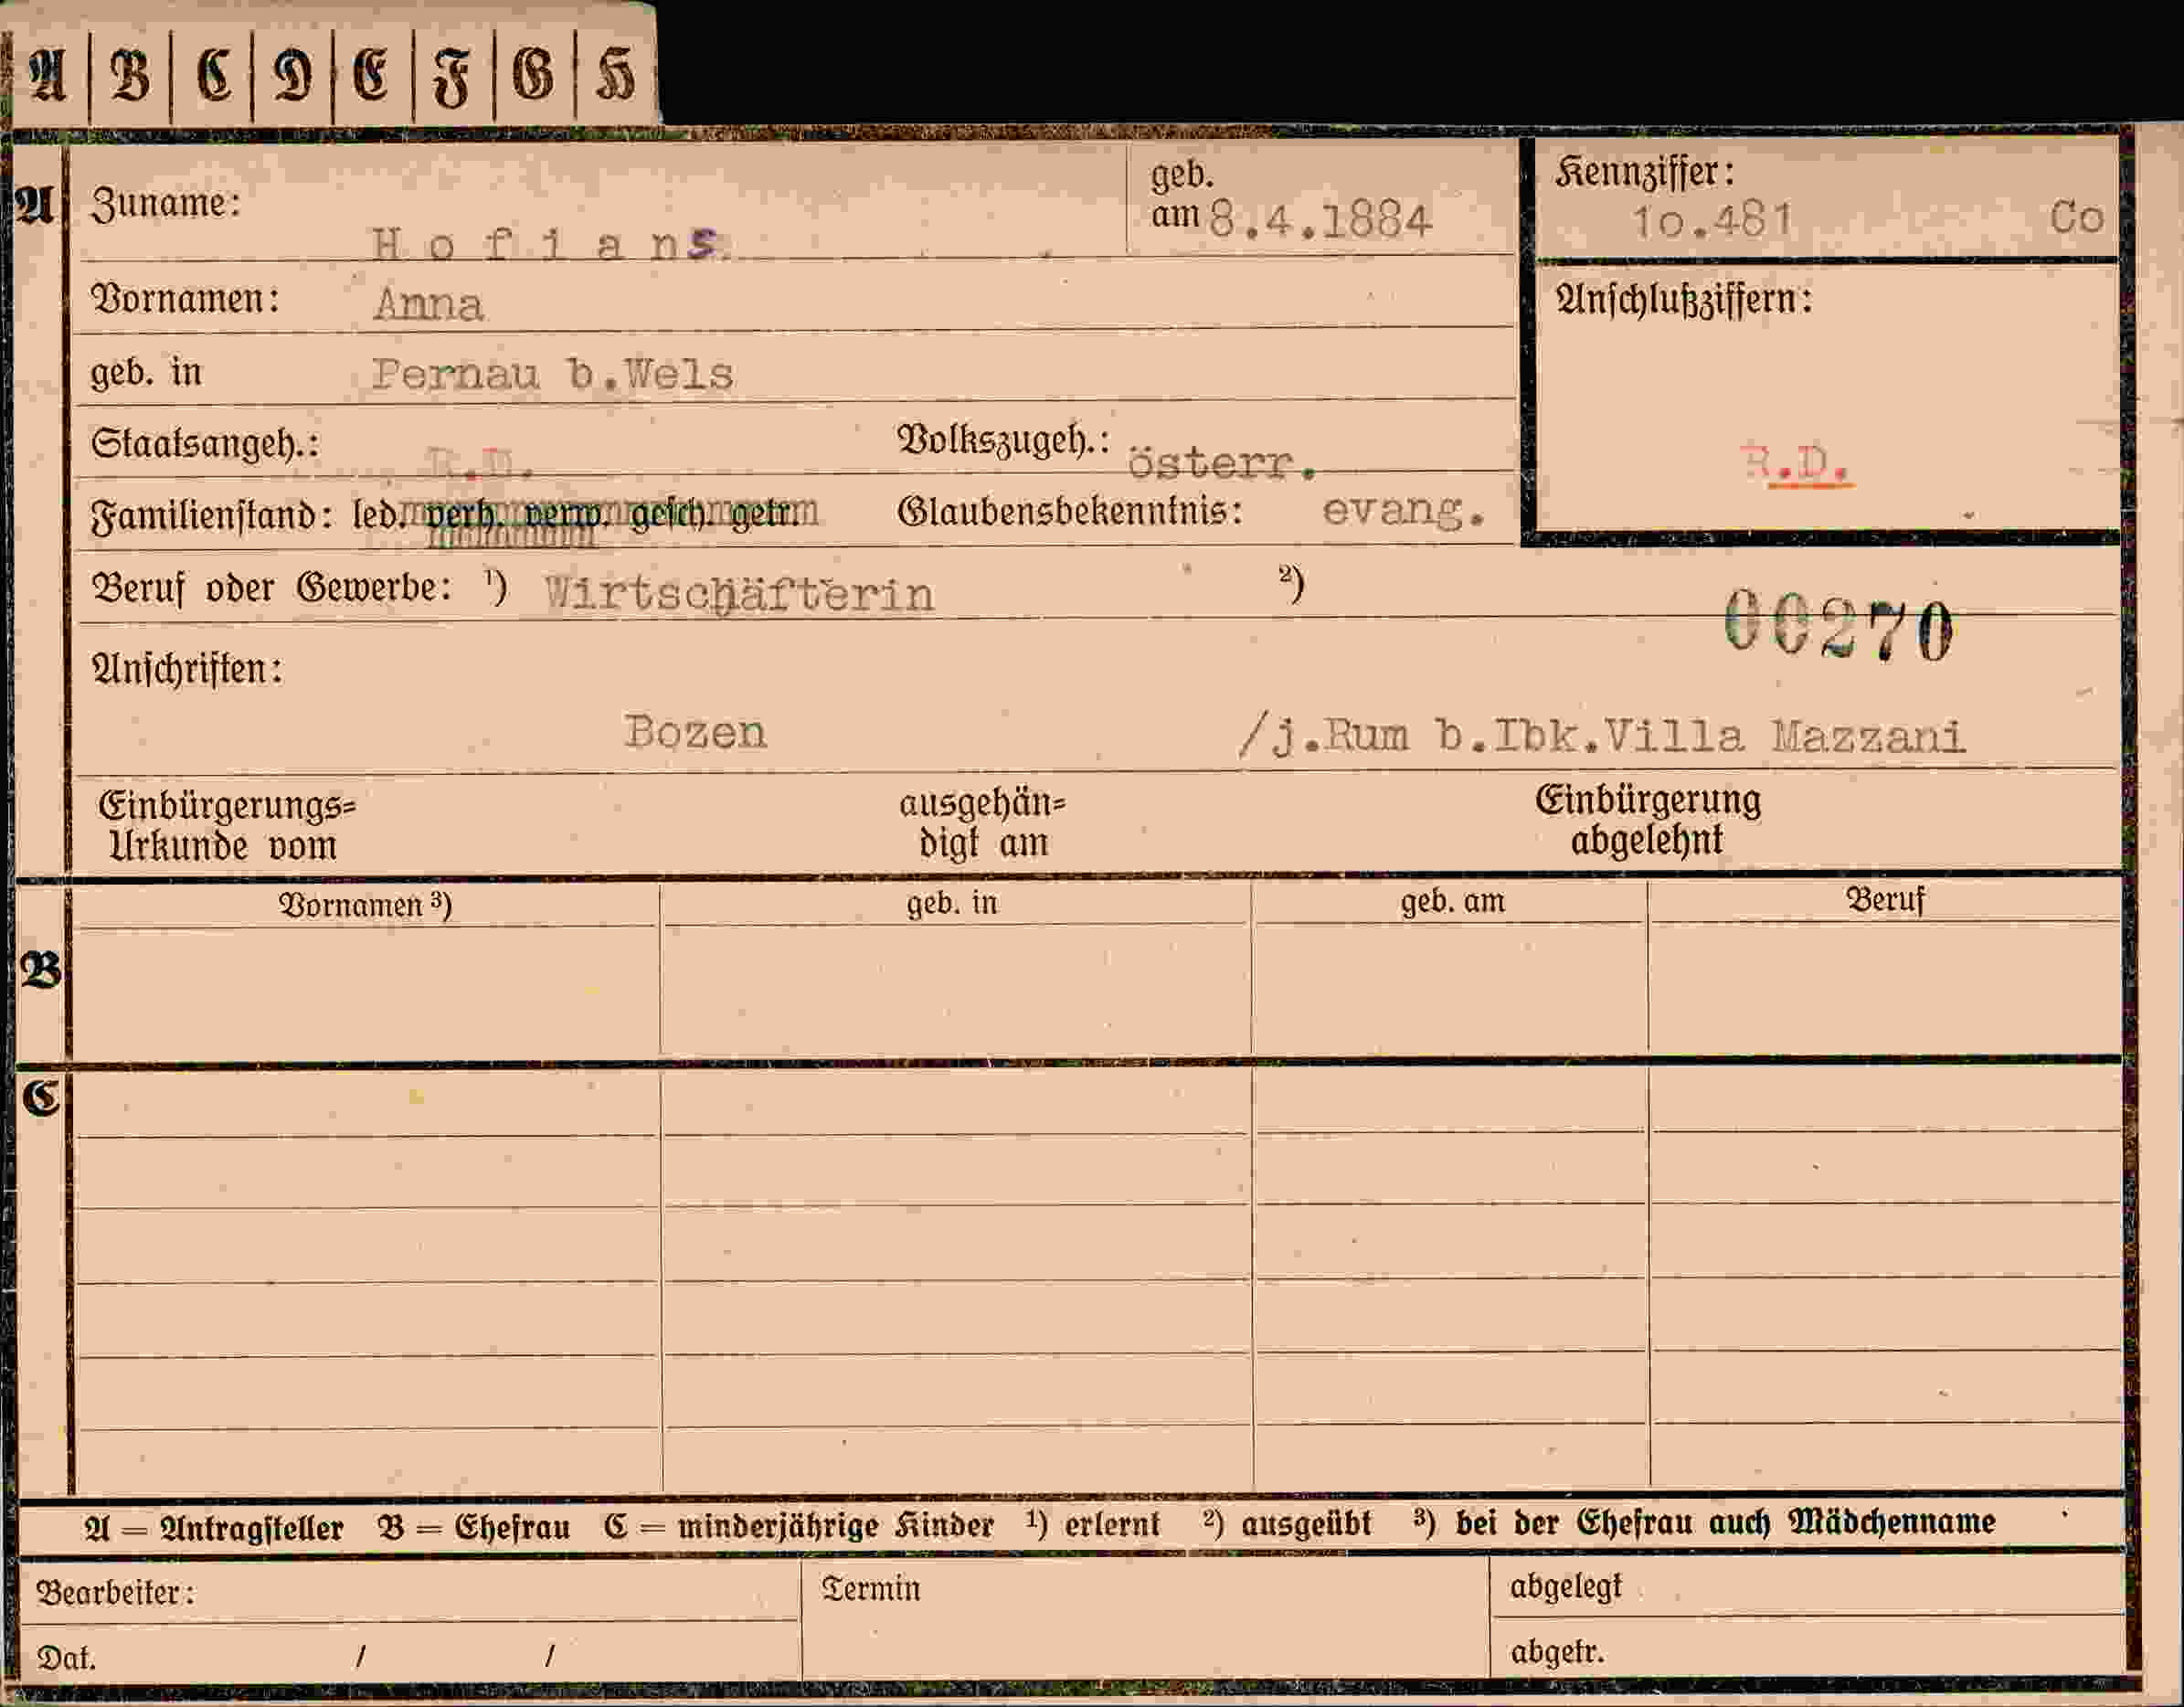 A B C D E F G H
A Zuname: Hofians geb. am 8.4.1884 Kennziffer: 10.481 Co
Vornamen: Anna Anschlußziffern:
geb. in Pernau b.Wels
Staatsangeh.: R.D. Volkszugeh.: österr. R.D.
Familienstand: led. verh. verw. gesch. getr. Glaubensbekenntnis: evang.
Beruf oder Gewerbe: ¹) Wirtschäfterin ²)
00270
Anschriften:
Bozen /j.Rum b.Ibk.Villa Mazzani
Einbürgerungs= ausgehän= Einbürgerung
Urkunde vom digt am abgelehnt
Vornamen ³) geb. in geb. am Beruf
B
C
A = Antragsteller B = Ehefrau C = minderjährige Kinder ¹) erlernt ²) ausgeübt ³) bei der Ehefrau auch Mädchenname
Bearbeiter: Termin abgelegt
Dat. / / abgetr.